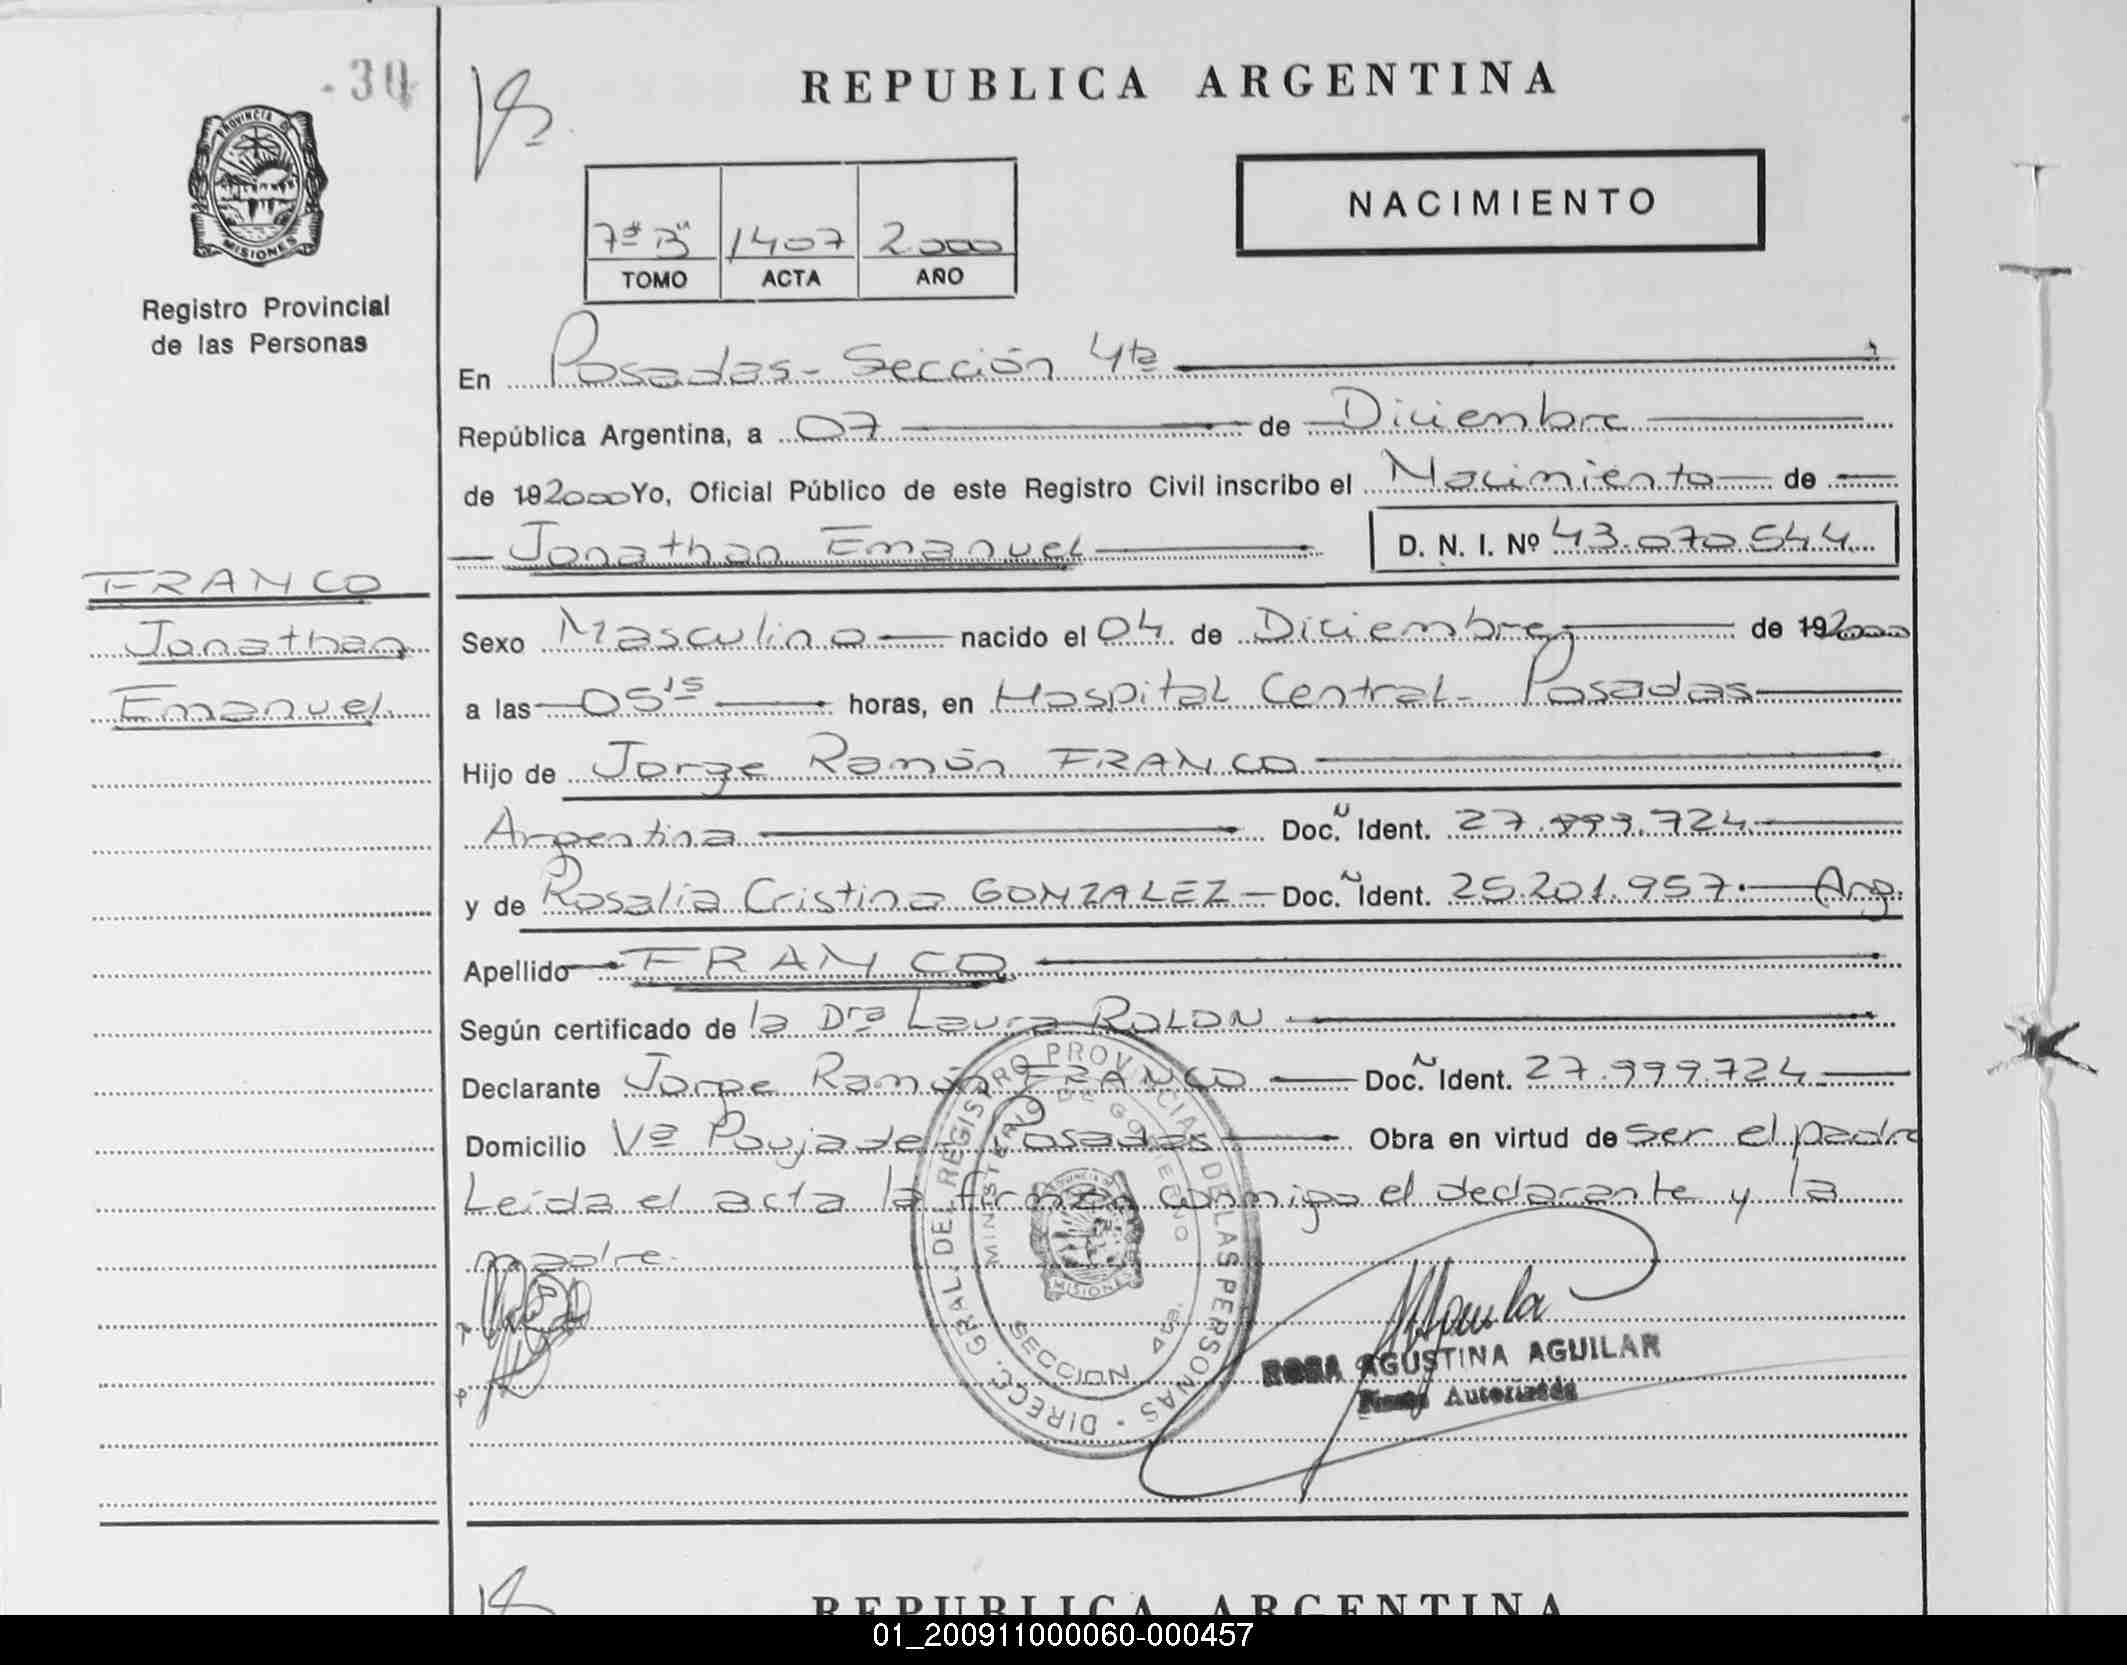 30
REPUBLICA ARGENTINA
PROVINCIA DE
MISIONES
Registro Provincial
de las Personas
7º "B" 1407 2.000
TOMO ACTA AÑO
NACIMIENTO
En Posadas - Sección 4ta
República Argentina, a 07 de Diciembre
de 192000 Yo, Oficial Público de este Registro Civil inscribo el Nacimiento de
Jonathan Emanuel D. N. I. Nº 43.070.544
FRANCO
Jonathan
Emanuel
Sexo Masculino nacido el 04 de Diciembre de 192000
a las 05 15 horas, en Hospital Central - Posadas
Hijo de Jorge Ramón FRANCO
Argentina Doc. Ident. 27.999.724
y de Rosalia Cristina GONZALEZ Doc. Ident. 25.201.957. Arg.
Apellido FRANCO
Según certificado de la Dra Laura ROLON
Declarante Jorge Ramón FRANCO Doc. Ident. 27.999.724
Domicilio Vª Poujade Posadas Obra en virtud de ser el padre
Leída el acta la firman conmigo el declarante y la
madre.
DIRECC. GRAL. DEL REGISTRO PROVINCIAL DE LAS PERSONAS
MINISTERIO DE GOBIERNO
SECCION 4ta.
PROVINCIA DE
MISIONES
ROSA AGUSTINA AGUILAR
Firma Autorizada
REPUBLICA ARGENTINA
01_200911000060-000457